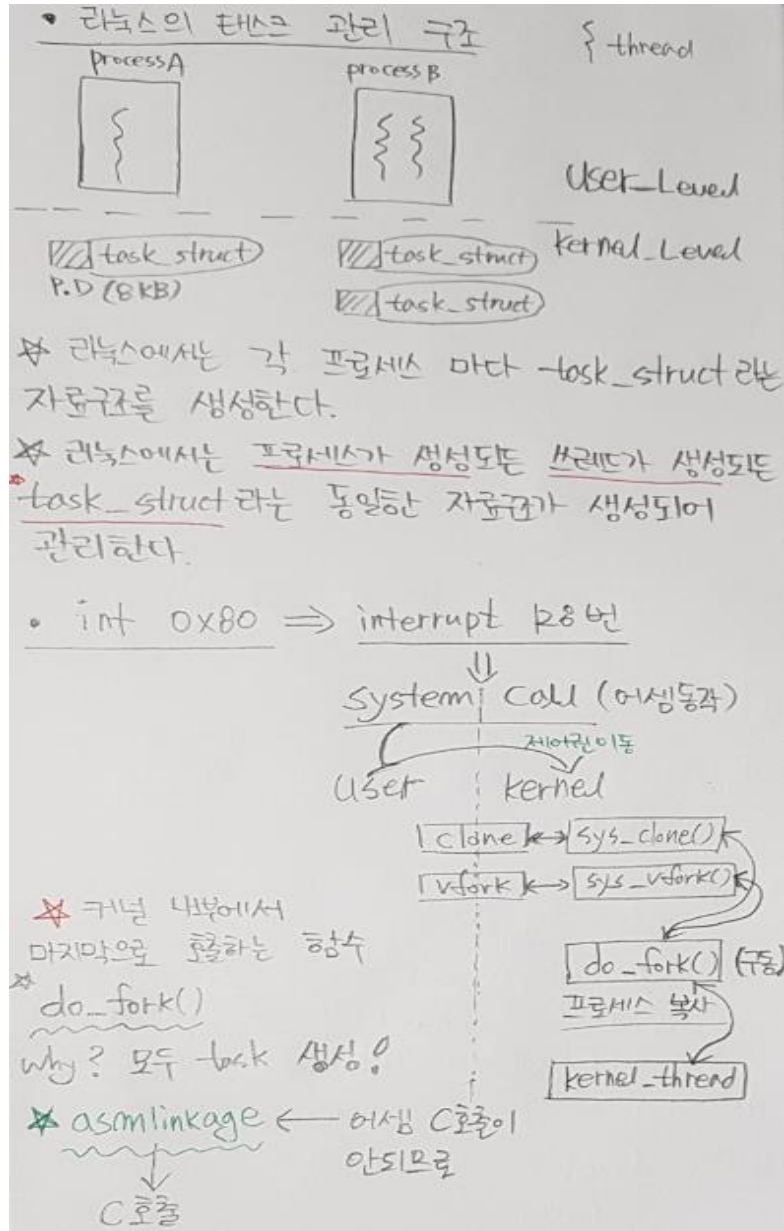 • 리눅스의 태스크 관리 구조
thread
processA
processB
User_Level
kernel_Level
task_struct
task_struct
P.D (8KB)
task_struct
☆ 리눅스에서는 각 프로세스 마다 task_struct라는
자료구조를 생성한다.
☆ 리눅스에서는 프로세스가 생성되든 쓰레드가 생성되든
task_struct라는 동일한 자료구조가 생성되어
관리한다.
• int 0x80 ⇒ interrupt 128번
⇓
system call (어셈동작)
제어권이동
user kernel
clone ↔ sys_clone()
vfork ↔ sys_vfork()
☆ 커널 내부에서
마지막으로 호출하는 함수
do_fork() (구동)
☆ do_fork()
프로세스 복사
why? 모두 task 생성!
kernel_thread
☆ asmlinkage ← 어셈 C호출이
안되므로
↓
C호출